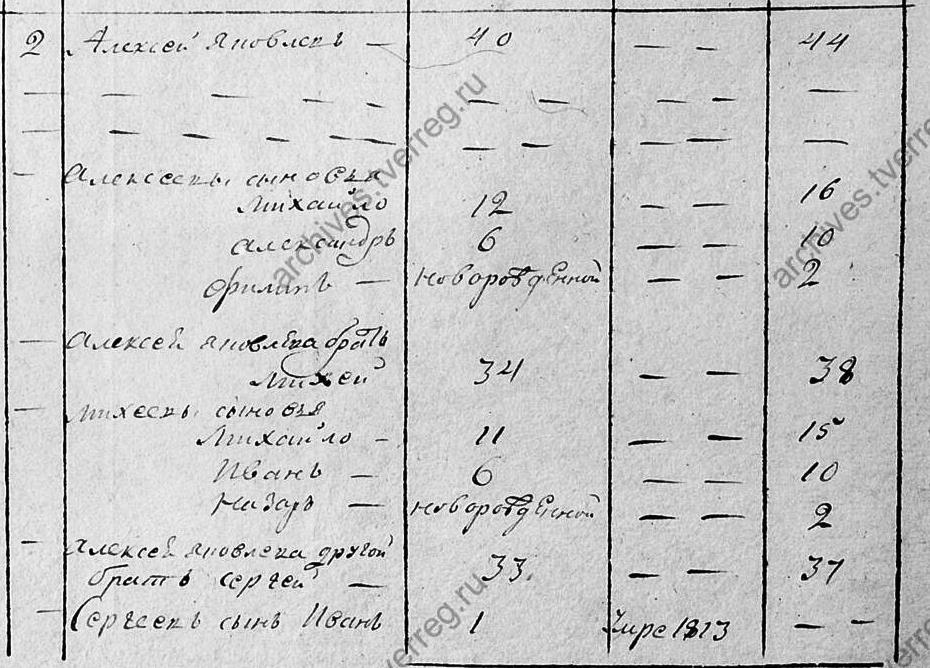 2 Алексей Яковлевъ — 40 — — 44
— — — — — — — — — —
— — — — — — — — — —
— Алексеевы сыновья
Михайло 12 — — 16
Александръ 6 — — 10
Филипъ — новорожденной — — 2
— Алексей Яковлева братъ
Михей 34 — — 38
— Михеевы сыновья
Михайло — 11 — — 15
Иванъ — 6 — — 10
Назаръ — новорожденной — — 2
— Алексей Яковлева другой
братъ Сергей — 33. — — 37
— Сергеевъ сынъ Иванъ 1 Умре 1813 — —
archives.tverreg.ru
archives.tverre
erreg.ru
erreg.ru